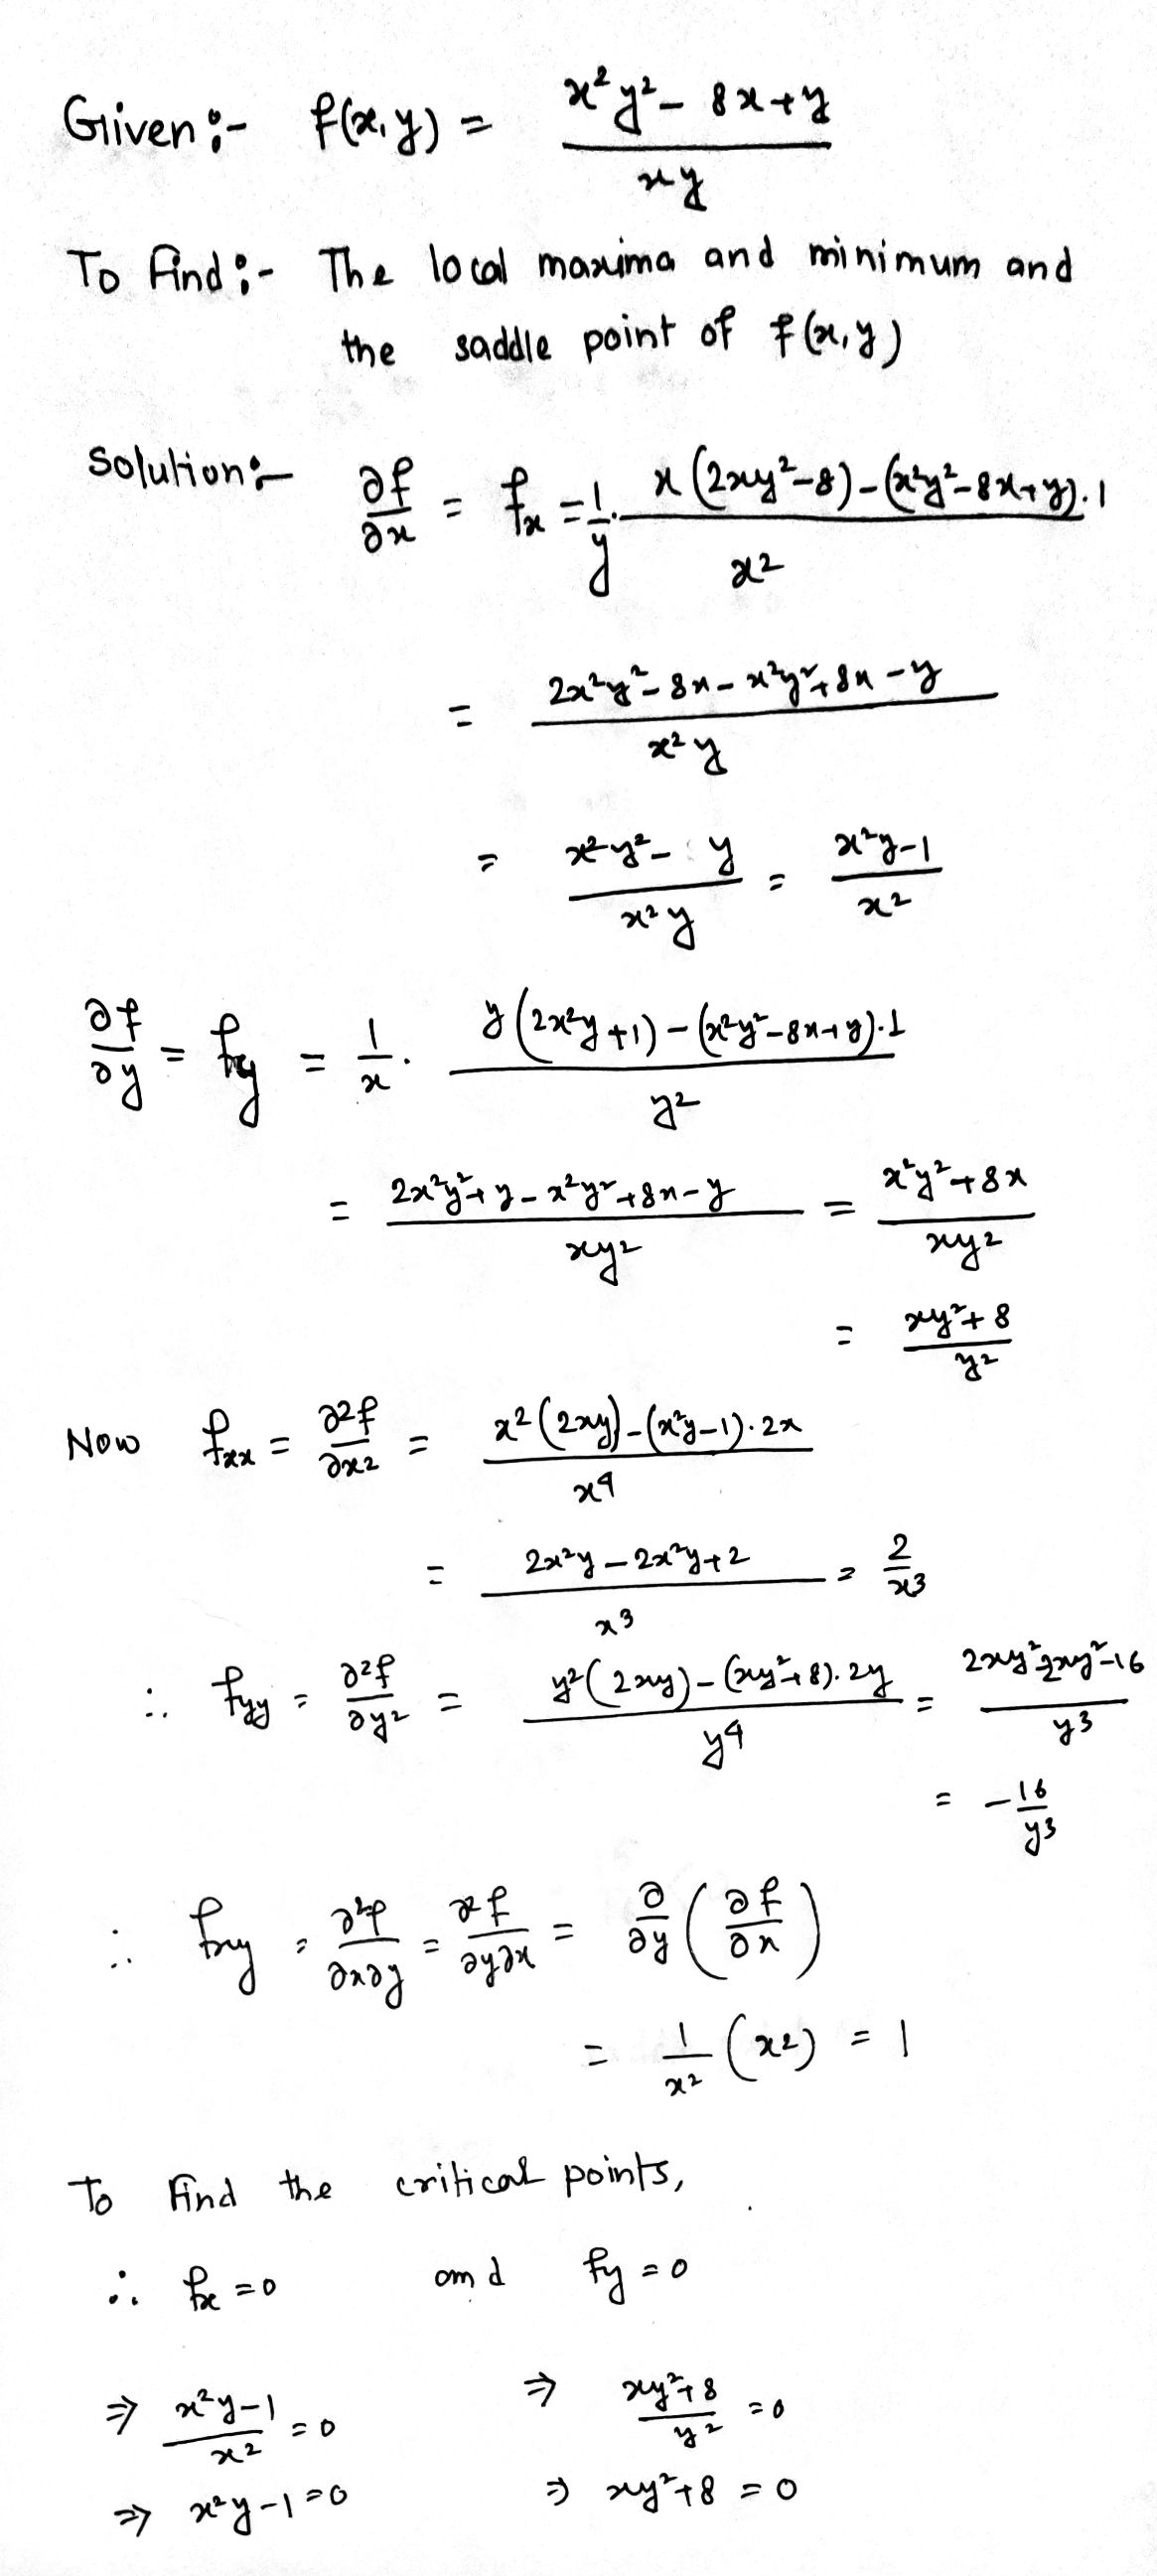 Given :- f(x,y) = (x²y² - 8x + y) / xy
To find :- The local maxima and minimum and
the saddle point of f(x,y)
Solution :- ∂f/∂x = fx = 1/y · (x(2xy² - 8) - (x²y² - 8x + y)·1) / x²
= (2x²y² - 8x - x²y² + 8x - y) / x²y
= (x²y² - y) / x²y = (x²y - 1) / x²
∂f/∂y = fy = 1/x · (y(2x²y + 1) - (x²y² - 8x + y)·1) / y²
= (2x²y² + y - x²y² + 8x - y) / xy² = (x²y² + 8x) / xy²
= (xy² + 8) / y²
Now fxx = ∂²f/∂x² = (x²(2xy) - (x²y - 1)·2x) / x⁴
= (2x²y - 2x²y + 2) / x³ = 2/x³
∴ fyy = ∂²f/∂y² = (y²(2xy) - (xy² + 8)·2y) / y⁴ = (2xy² - 2xy² - 16) / y³
= -16/y³
∴ fxy = ∂²f/∂x∂y = ∂²f/∂y∂x = ∂/∂y (∂f/∂x)
= 1/x² (x²) = 1
To find the critical points,
∴ fx = 0 and fy = 0
⇒ (x²y - 1) / x² = 0 ⇒ (xy² + 8) / y² = 0
⇒ x²y - 1 = 0 ⇒ xy² + 8 = 0